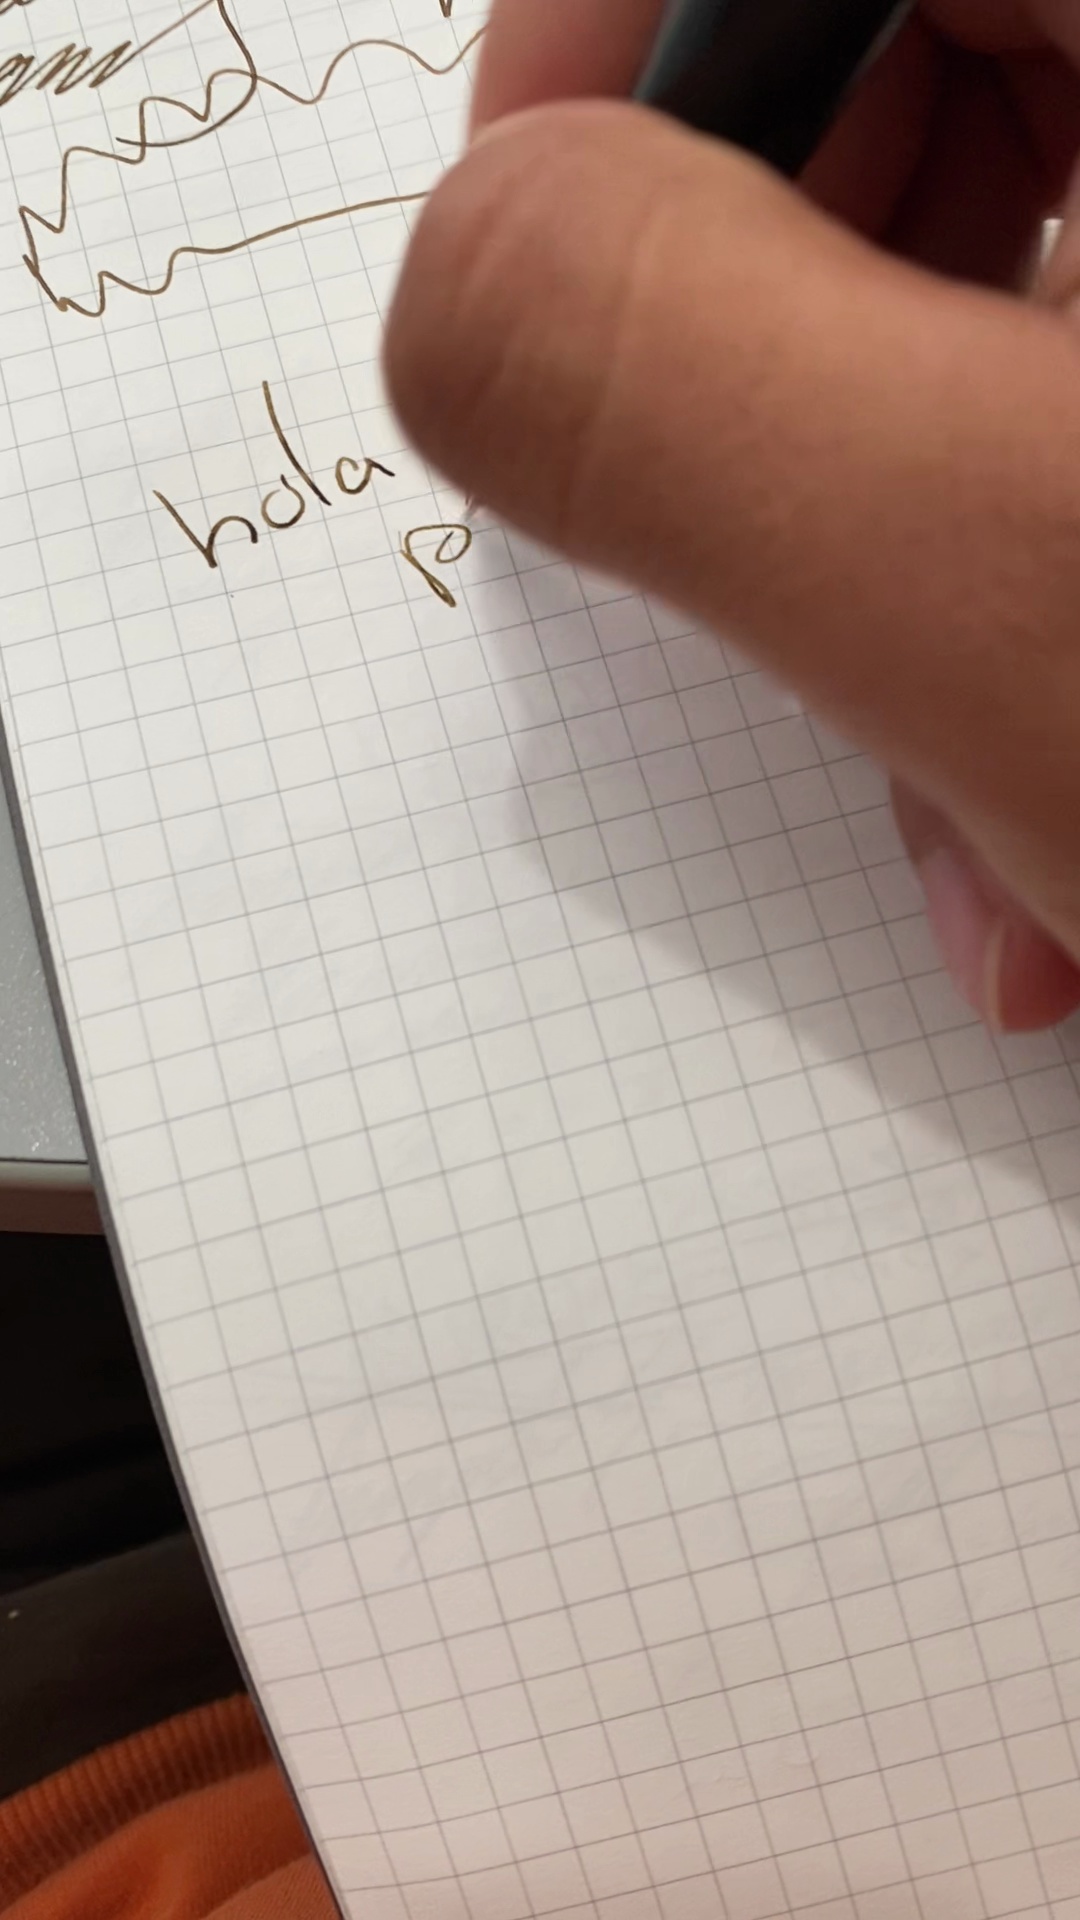 hola
p